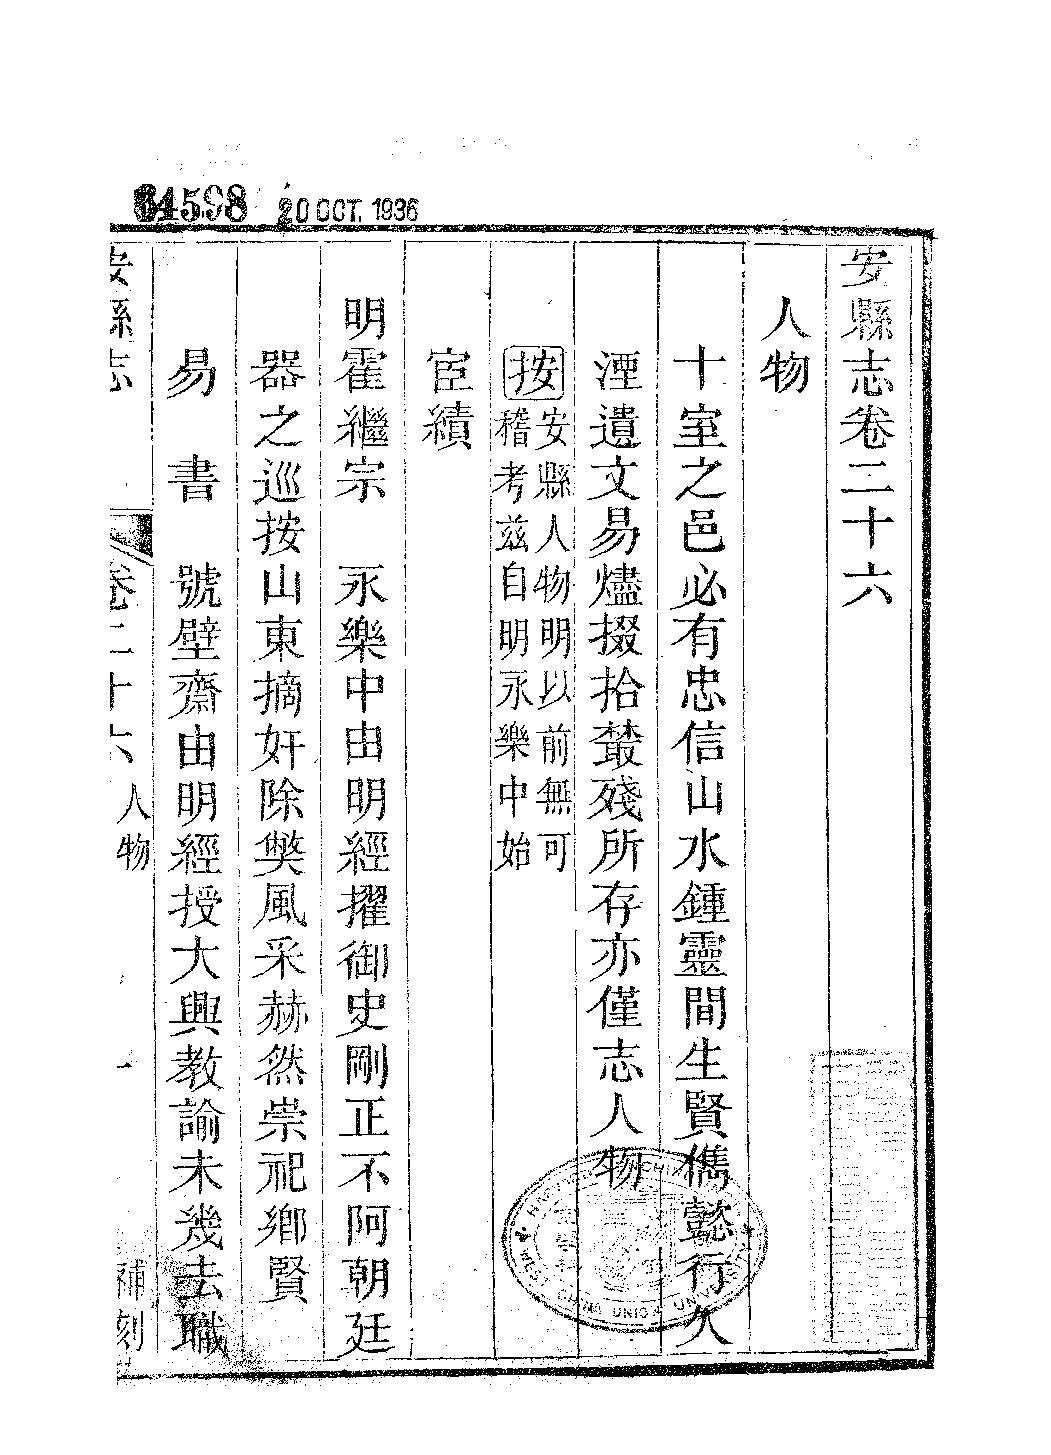 64598
20 OCT. 1936
安縣志卷二十六
人物
十室之邑必有忠信山水鍾靈間生賢儁懿行久
湮遺文易燼掇拾叢殘所存亦僅志人物
按安縣人物明以前無可
稽考兹自明永樂中始
宦績
明霍繼宗 永樂中由明經擢御史剛正不阿朝廷
器之巡按山東摘奸除獘風采赫然崇祀鄉賢
易書 號壁齋由明經授大興教諭未幾去職
安縣志 卷二十六 人物 一 補刻